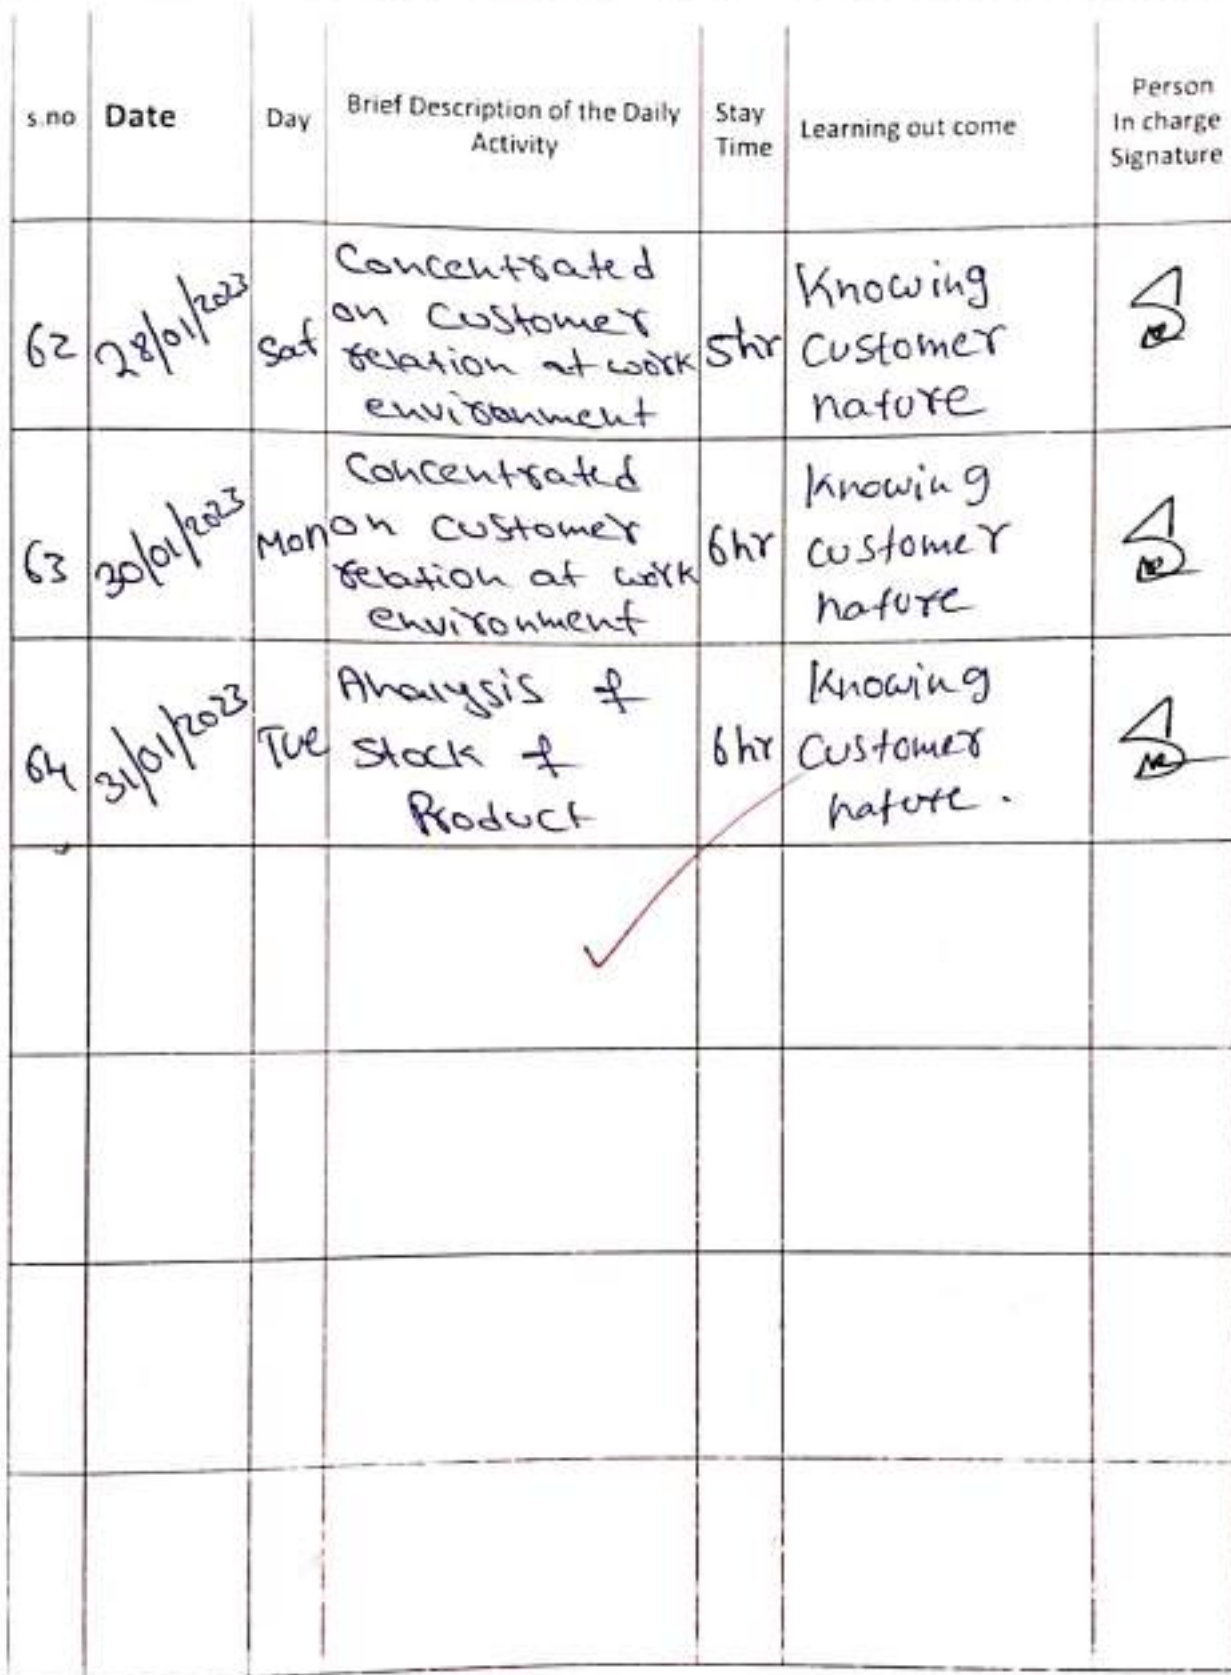 s.no Date Day Brief Description of the Daily Activity Stay Time Learning out come Person In charge Signature
62 28/01/2023 Sat Concentrated on customer relation at work environment 5hr Knowing customer nature
63 30/01/2023 Mon Concentrated on customer relation at work environment 6hr Knowing customer nature
64 31/01/2023 Tue Analysis of Stock of Product 6hr Knowing customer nature.